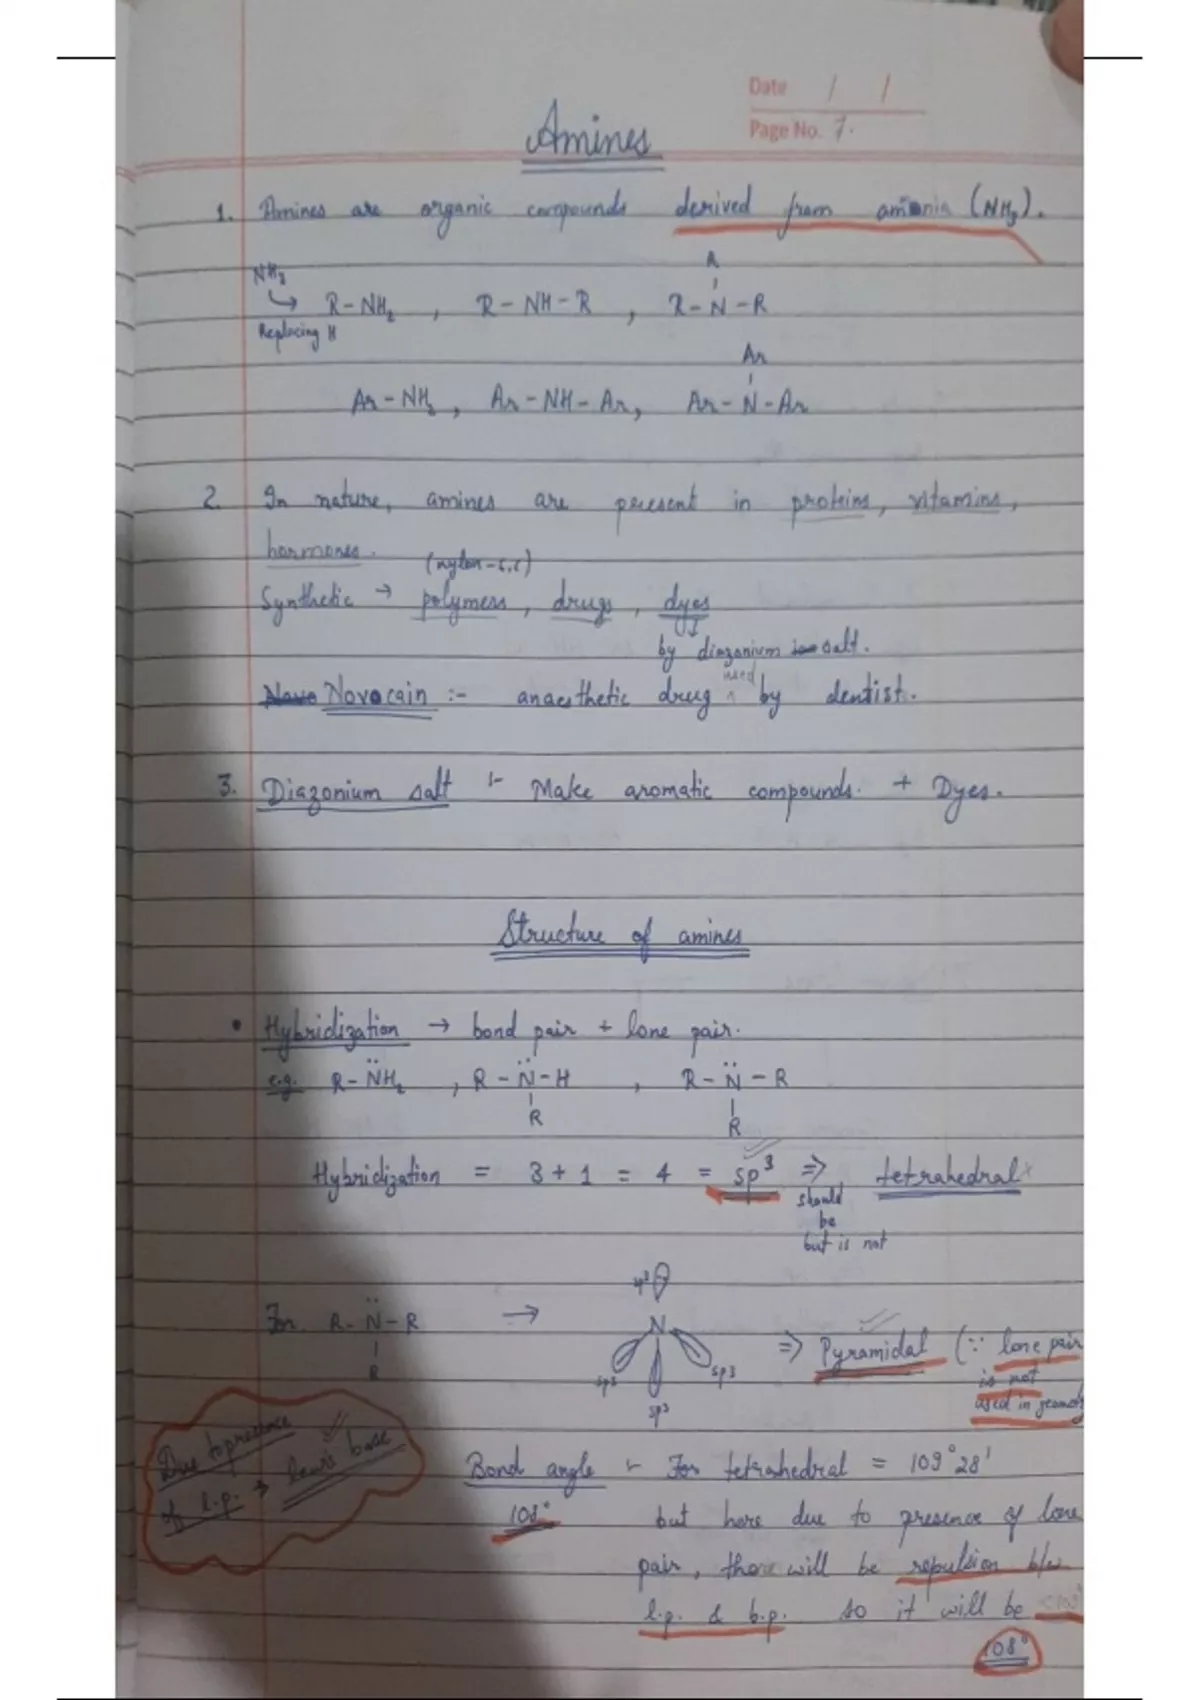 Date / /
Page No. 7.
Amines
1. Amines are organic compounds derived from amonia (NH3).
NH3
R
↳ R-NH2 , R-NH-R , R-N-R
Replacing H
Ar
Ar-NH2 , Ar-NH-Ar, Ar-N-Ar
2. In nature, amines are present in proteins, vitamins,
hormones.
(nylon-6,6)
Synthetic → polymers, drugs, dyes
by diazonium salt.
used
Novocain :- anaesthetic drug ^ by dentist.
3. Diazonium salt :- Make aromatic compounds. + Dyes.
Structure of amines
• Hybridization → bond pair + lone pair.
e.g. R-N̈H2 , R-N̈-H , R-N̈-R
R R
Hybridization = 3+1 = 4 = sp3 ⇒ tetrahedral
should
be
but is not
sp3
For R-N̈-R → N ⇒ Pyramidal (∵ lone pair
R
sp3 sp3
is not
sp3
used in geometry
Due to presence
of l.p. → lewis base
Bond angle :- For tetrahedral = 109°28'
108°
but here due to presence of lone
pair, there will be repulsion b/w
l.p. & b.p. so it will be
108°